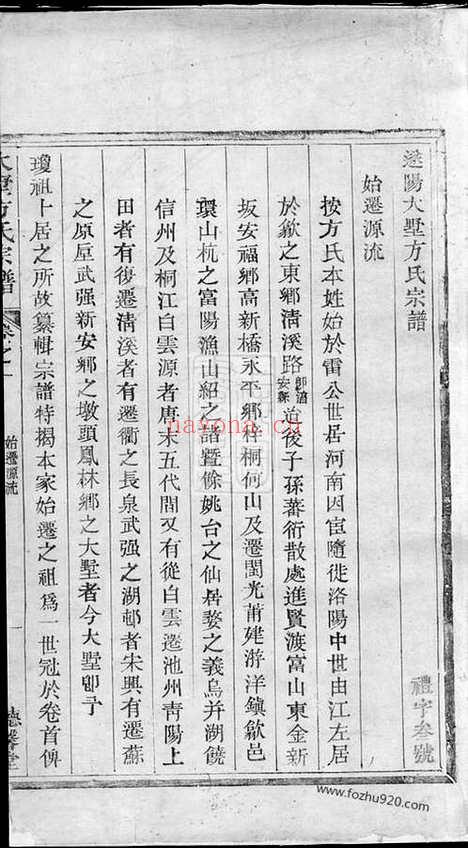 遂陽大墅方氏宗譜
禮字叁號
始遷源流
按方氏本姓始於雷公世居河南因宦隨徙洛陽中世由江左居
於歙之東鄉清溪路即淳安新道後子孫蕃衍散處進賢渡富山東金新
坂安福鄉高新橋永平鄉梓桐何山及遷閩光莆建游洋鎮歙邑
環山杭之富陽漁山紹之諸暨餘姚台之仙居婺之義烏并湖饒
信州及桐江白雲源者唐末五代間又有從白雲遷池州青陽上
田者有復遷清溪者有遷衢之長泉武强之湖邨者宋興有遷蘇
之原屋武强新安鄉之墩頭鳳林鄉之大墅者今大墅卽予
瓊祖卜居之所故纂輯宗譜特揭本家始遷之祖爲一世冠於卷首俾
大墅方氏宗譜
卷之一
始遷源流
德馨堂
nayona.cn
www.fozhu920.com